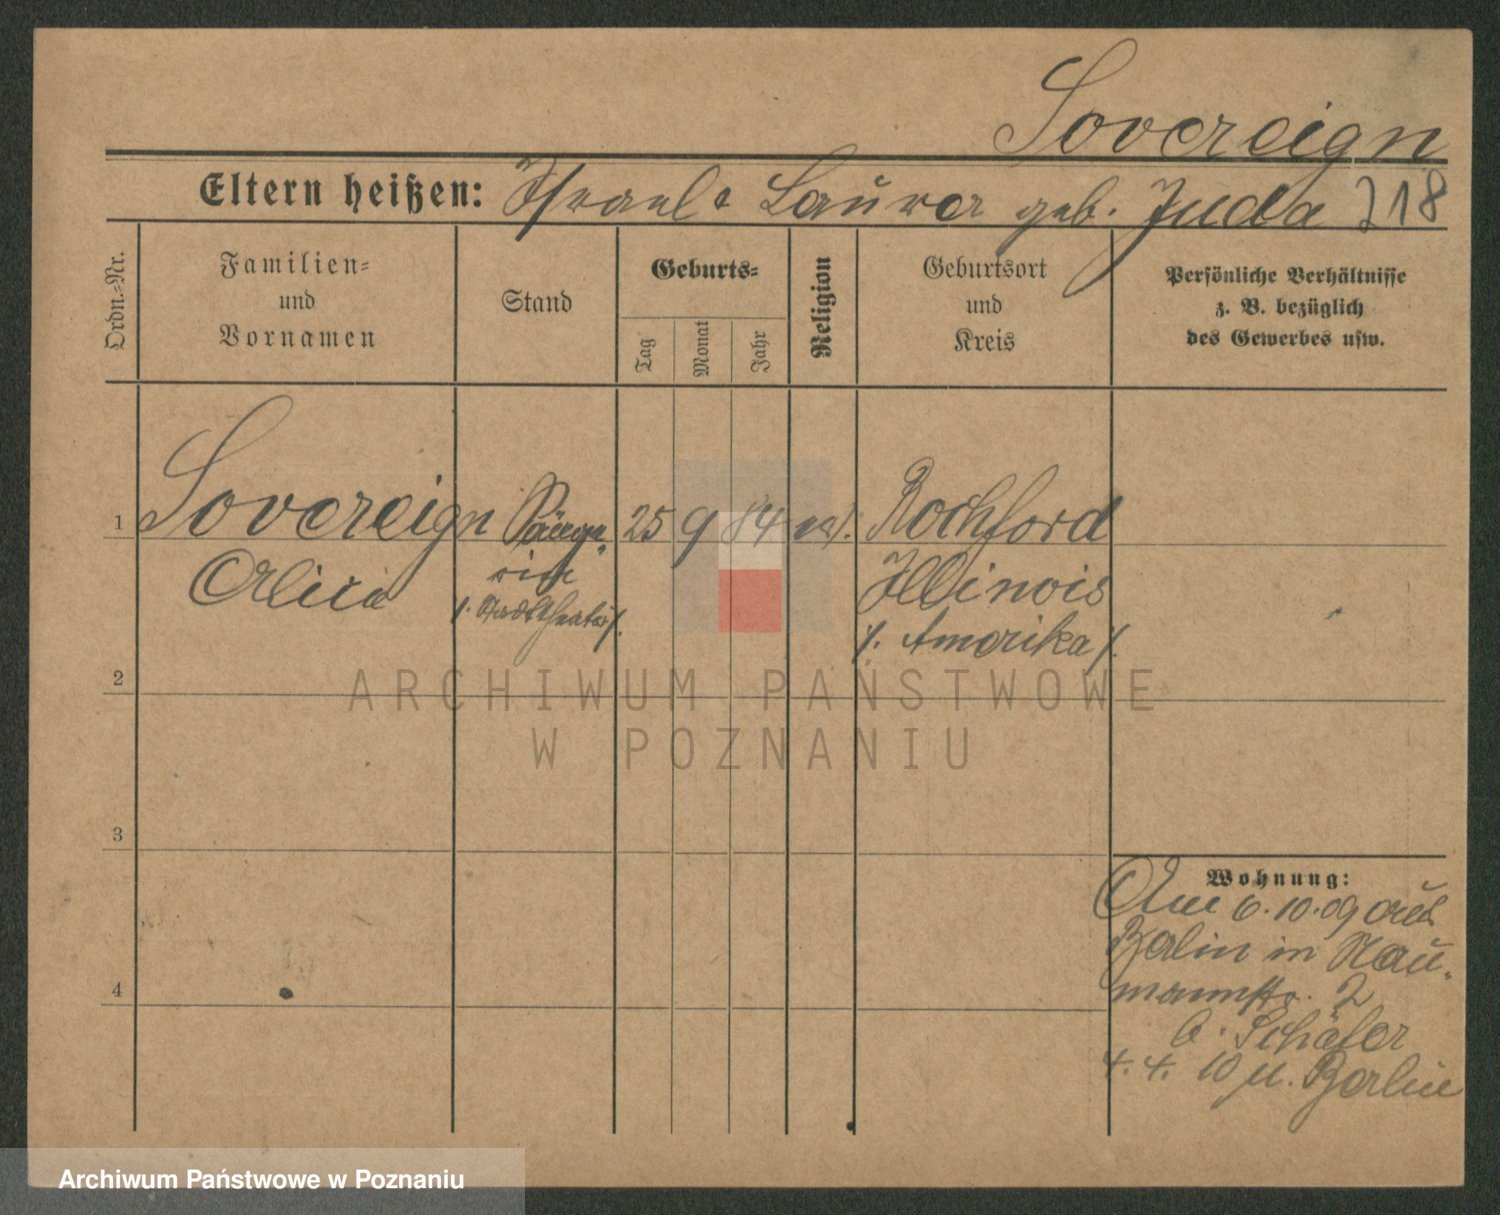 Sovereign
Eltern heißen: Israel & Laura geb. Juda 218
Ordn.-Nr.
Familien-
und
Vornamen
Stand
Geburts-
Tag
Monat
Jahr
Religion
Geburtsort
und
Kreis
Persönliche Verhältnisse
z. B. bezüglich
des Gewerbes usw.
1 Sovereign Sänge- 25 9 84 Rochford
Alice rin Illinois
/. Stadttheater /. /. Amerika /.
2
ARCHIWUM PAŃSTWOWE
W POZNANIU
3
Wohnung:
Am 6.10.09 aus
Berlin in Nau-
mannstr. 2
b. Schäfer
4
4. 4. 10 n. Berlin
Archiwum Państwowe w Poznaniu